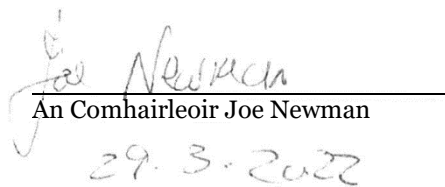 Joe Newman
An Comhairleoir Joe Newman
29.3.2022